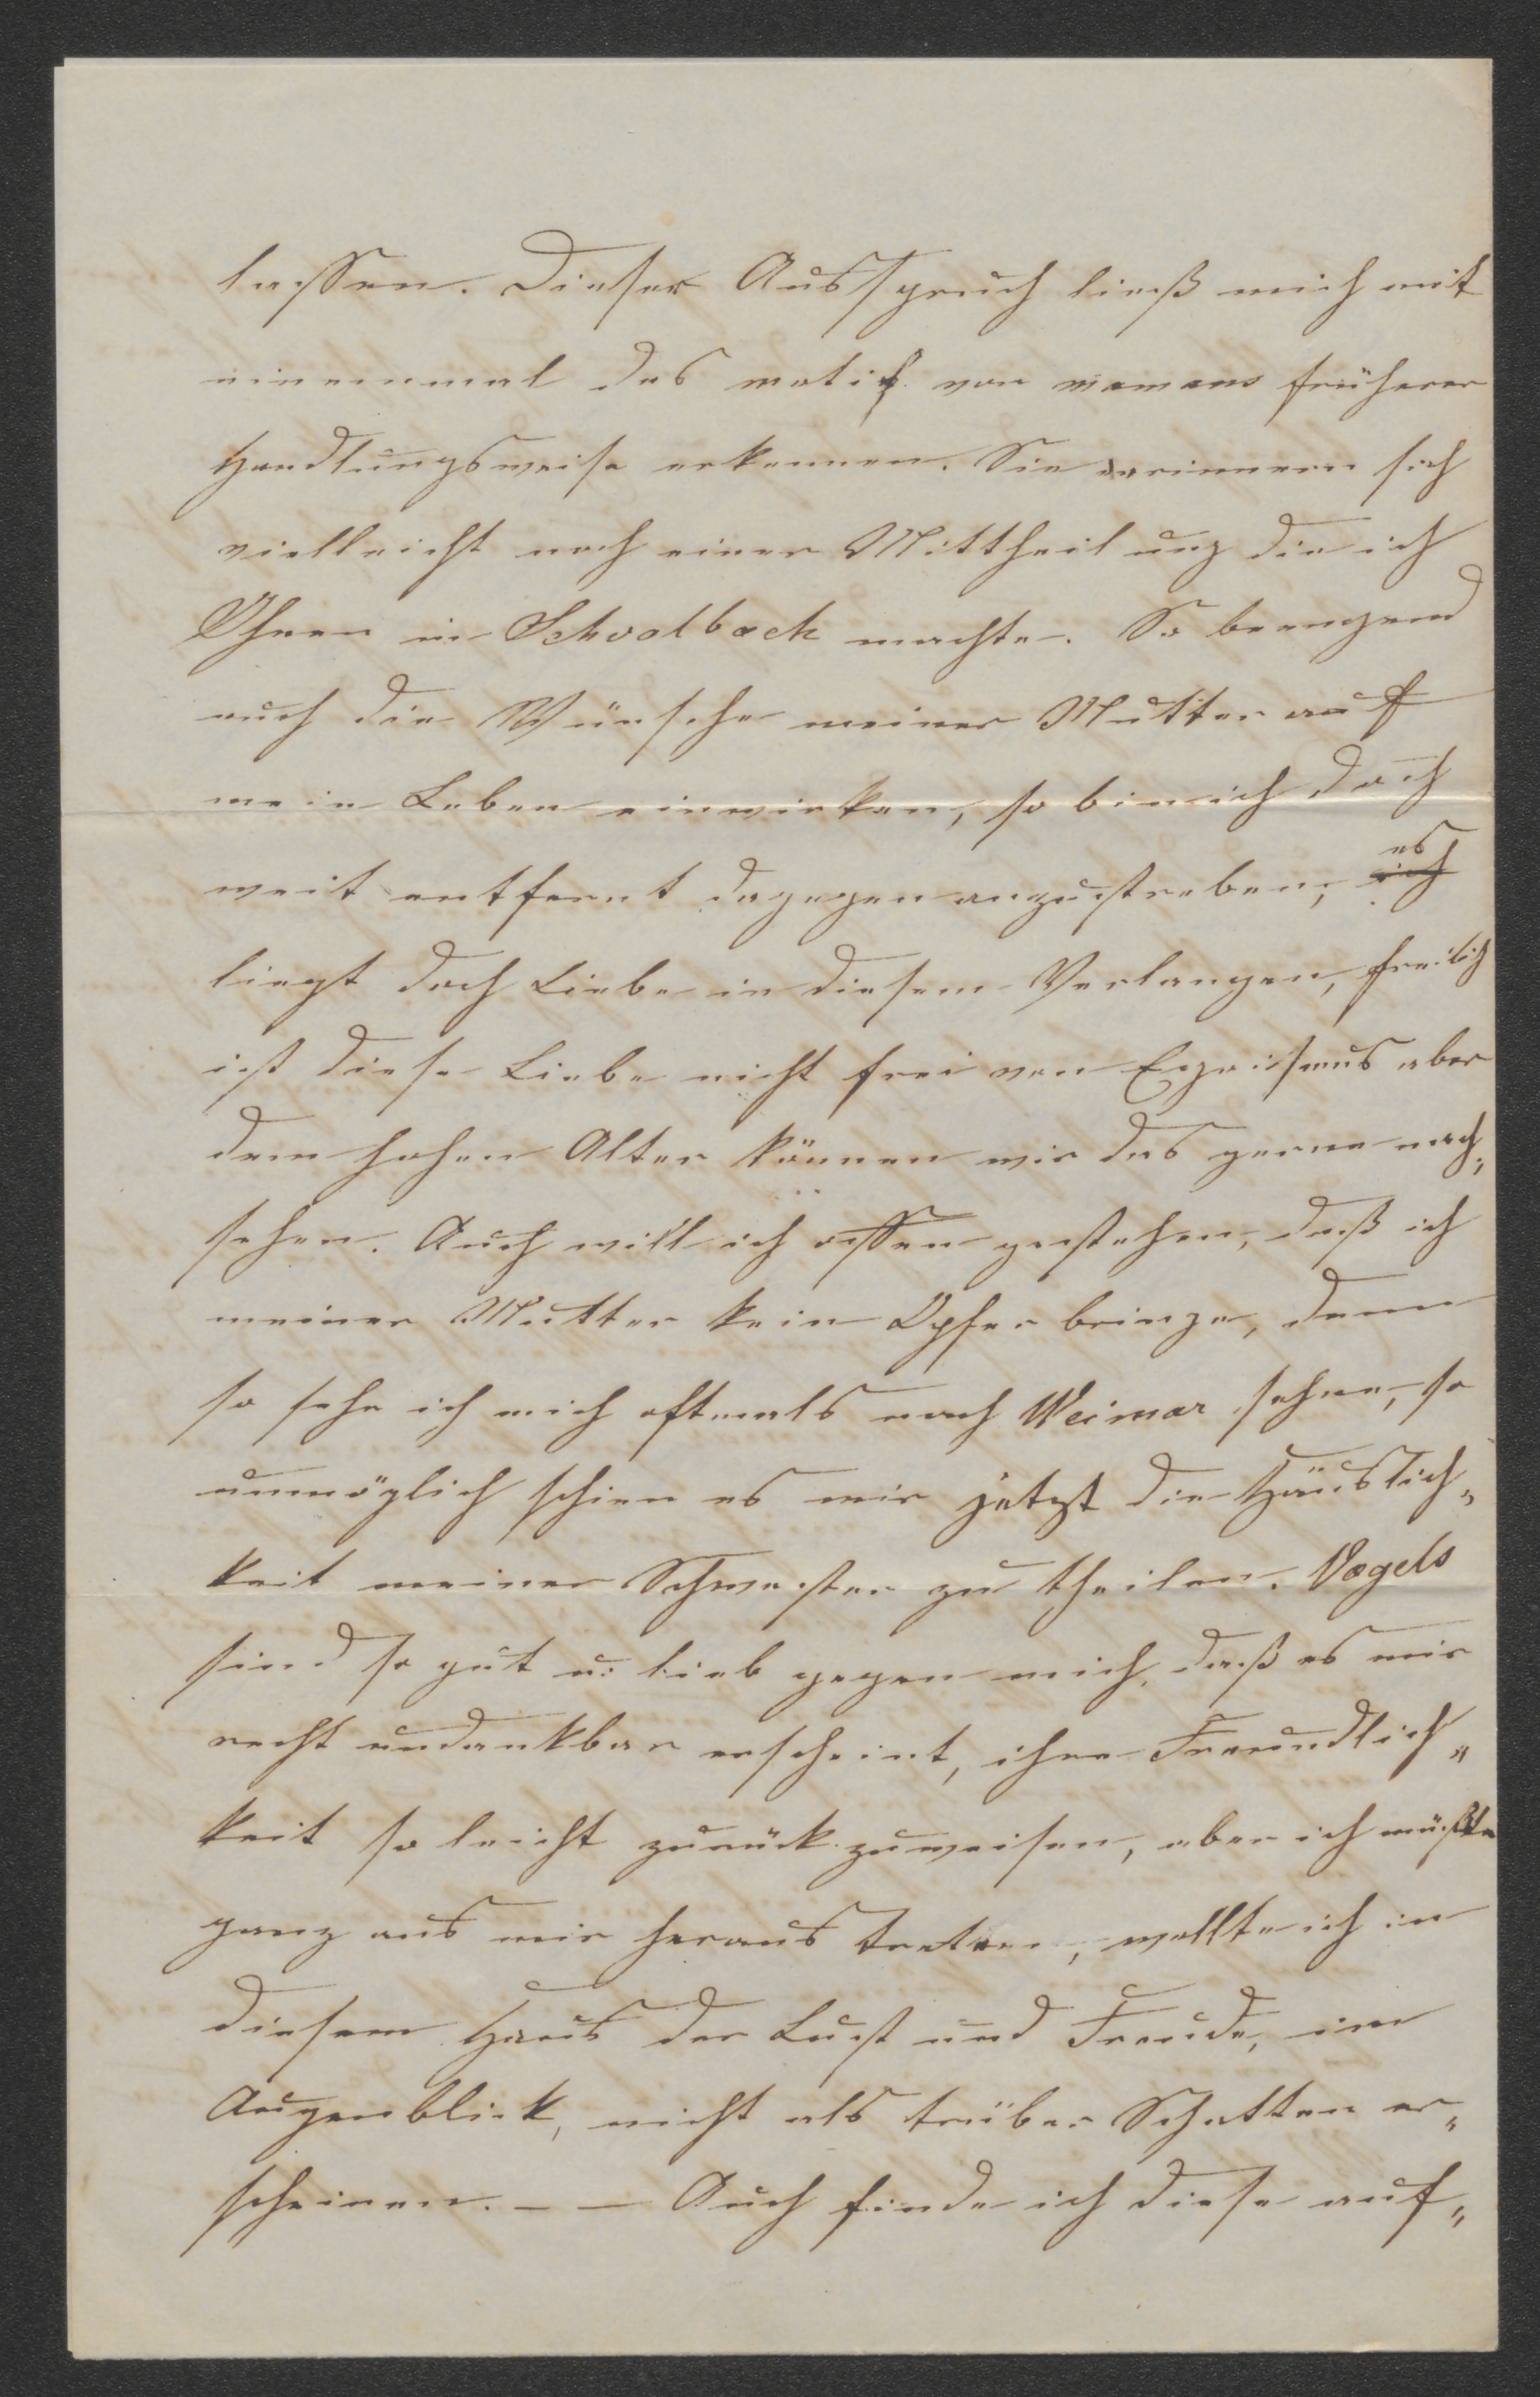 lassen. Dieser Ausspruch ließ mich mit
einemmal das motif von mamans früherer
Handlungsweise erkennen. Sie erinnern sich
vielleicht noch einer Mittheilung die ich
Ihnen in Schwalbach machte. So beengend
auch die Wünsche meiner Mutter auf
mein Leben einwirken, so bin ich doch
weit entfernt dagegen anzustreben, ich es
liegt doch Liebe in diesem Verlangen, freilich
ist diese Liebe nicht frei von Egoismus aber
dem hohen Alter können wir das gerne nach„
sehen. Auch will ich offen gestehen, daß ich
meiner Mutter kein Opfer bringe, denn
so sehr ich mich oftmals nach Weimar sehne, so
unmöglich schien es mir jetzt die Häuslich„
keit meiner Schwester zu theilen. Vogels
sind so gut u: lieb gegen mich, daß es mir
recht undankbar erscheint, ihre Freundlich„
keit so leicht zurückzuweisen, aber ich müßte
ganz aus mir heraus treten, wollte ich in
diesem Haus der Lust und Freude, im
Augenblick, nicht als trüber Schatten er„
scheinen. — — Auch finde ich diese auf„